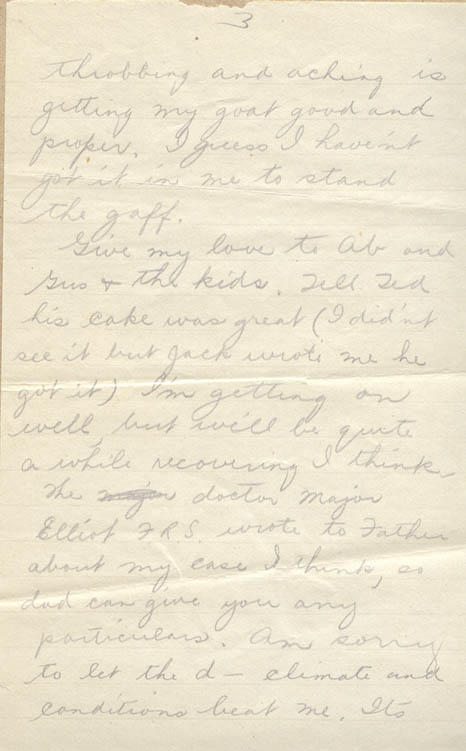 3
throbbing and aching is
getting my goat good and
proper. I guess I have'nt
got it in me to stand
the gaff.
Give my love to Ab and
Gus + the kids. Tell Ted
his cake was great (I did'nt
see it but Jack wrote me he
got it) I'm getting on
well, but will be quite
a while recovering I think.
The major doctor Major
Elliot F.R.S. wrote to Father
about my case I think, so
dad can give you any
particulars. Am sorry
to let the d— climate and
conditions beat me. Its